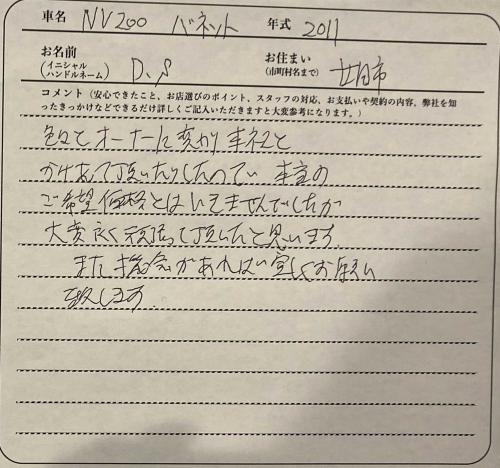 車名 NV200 バネット 年式 2011
お名前 (イニシャル ハンドルネーム) D.S お住まい (市町村名まで) 廿日市
コメント（安心できたこと、お店選びのポイント、スタッフの対応、お支払いや契約の内容、弊社を知
ったきっかけなどできるだけ詳しくご記入いただきますと大変参考になります。）
色々とオーナーに変わり本社と
かけあって頂いたりしたので
ご希望価格とはいきませんでしたが
大変良く頑張って頂いたと思います。
また機会があればい宜しくお願い
致します。